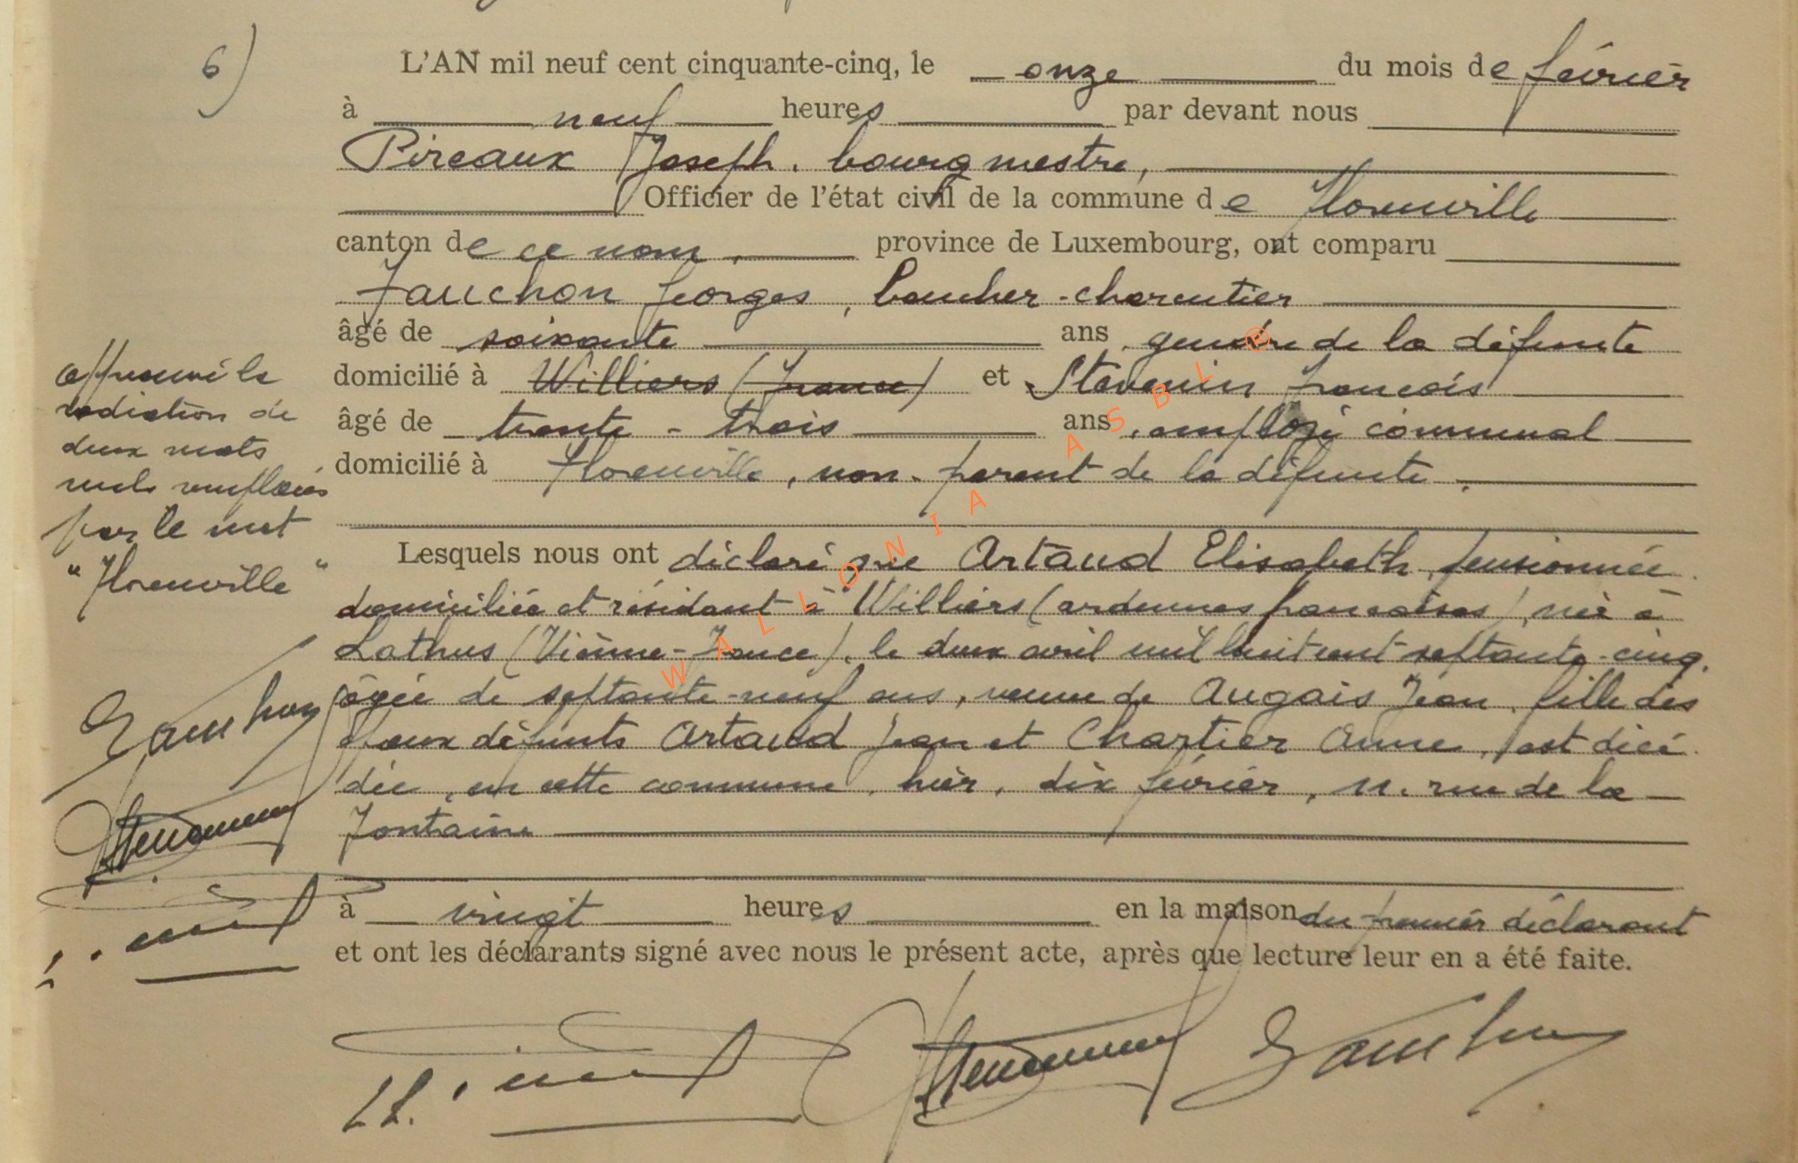 6)
L'AN mil neuf cent cinquante-cinq, le onze du mois de février
à neuf heures par devant nous
Pireaux Joseph, bourgmestre,
Officier de l'état civil de la commune de Florenville
canton de ce nom, province de Luxembourg, ont comparu
Fauchon Georges, boucher-charcutier
âgé de soixante ans, gendre de la défunte
domicilié à Williers (France) et Stevenin François
âgé de trente-trois ans, employé communal
domicilié à Florenville, non-parent de la défunte.
Lesquels nous ont déclaré que Artaud Elisabeth, pensionnée
domiciliée et résidant à Williers (ardennes françaises), née à
Lathus (Vienne-France), le deux avril mil huit cent septante-cinq,
âgée de septante-neuf ans, veuve de Augais Jean, fille des
époux défunts Artaud Jean et Chartier Anne, est décé
dée, en cette commune, hier, dix février, 11, rue de la
Fontaine
à vingt heures en la maison du premier déclarant
et ont les déclarants signé avec nous le présent acte, après que lecture leur en a été faite.
approuvé la
radiation de
deux mots
nuls remplacés
par le mot
"Florenville"
WALLONIA ASBL ®